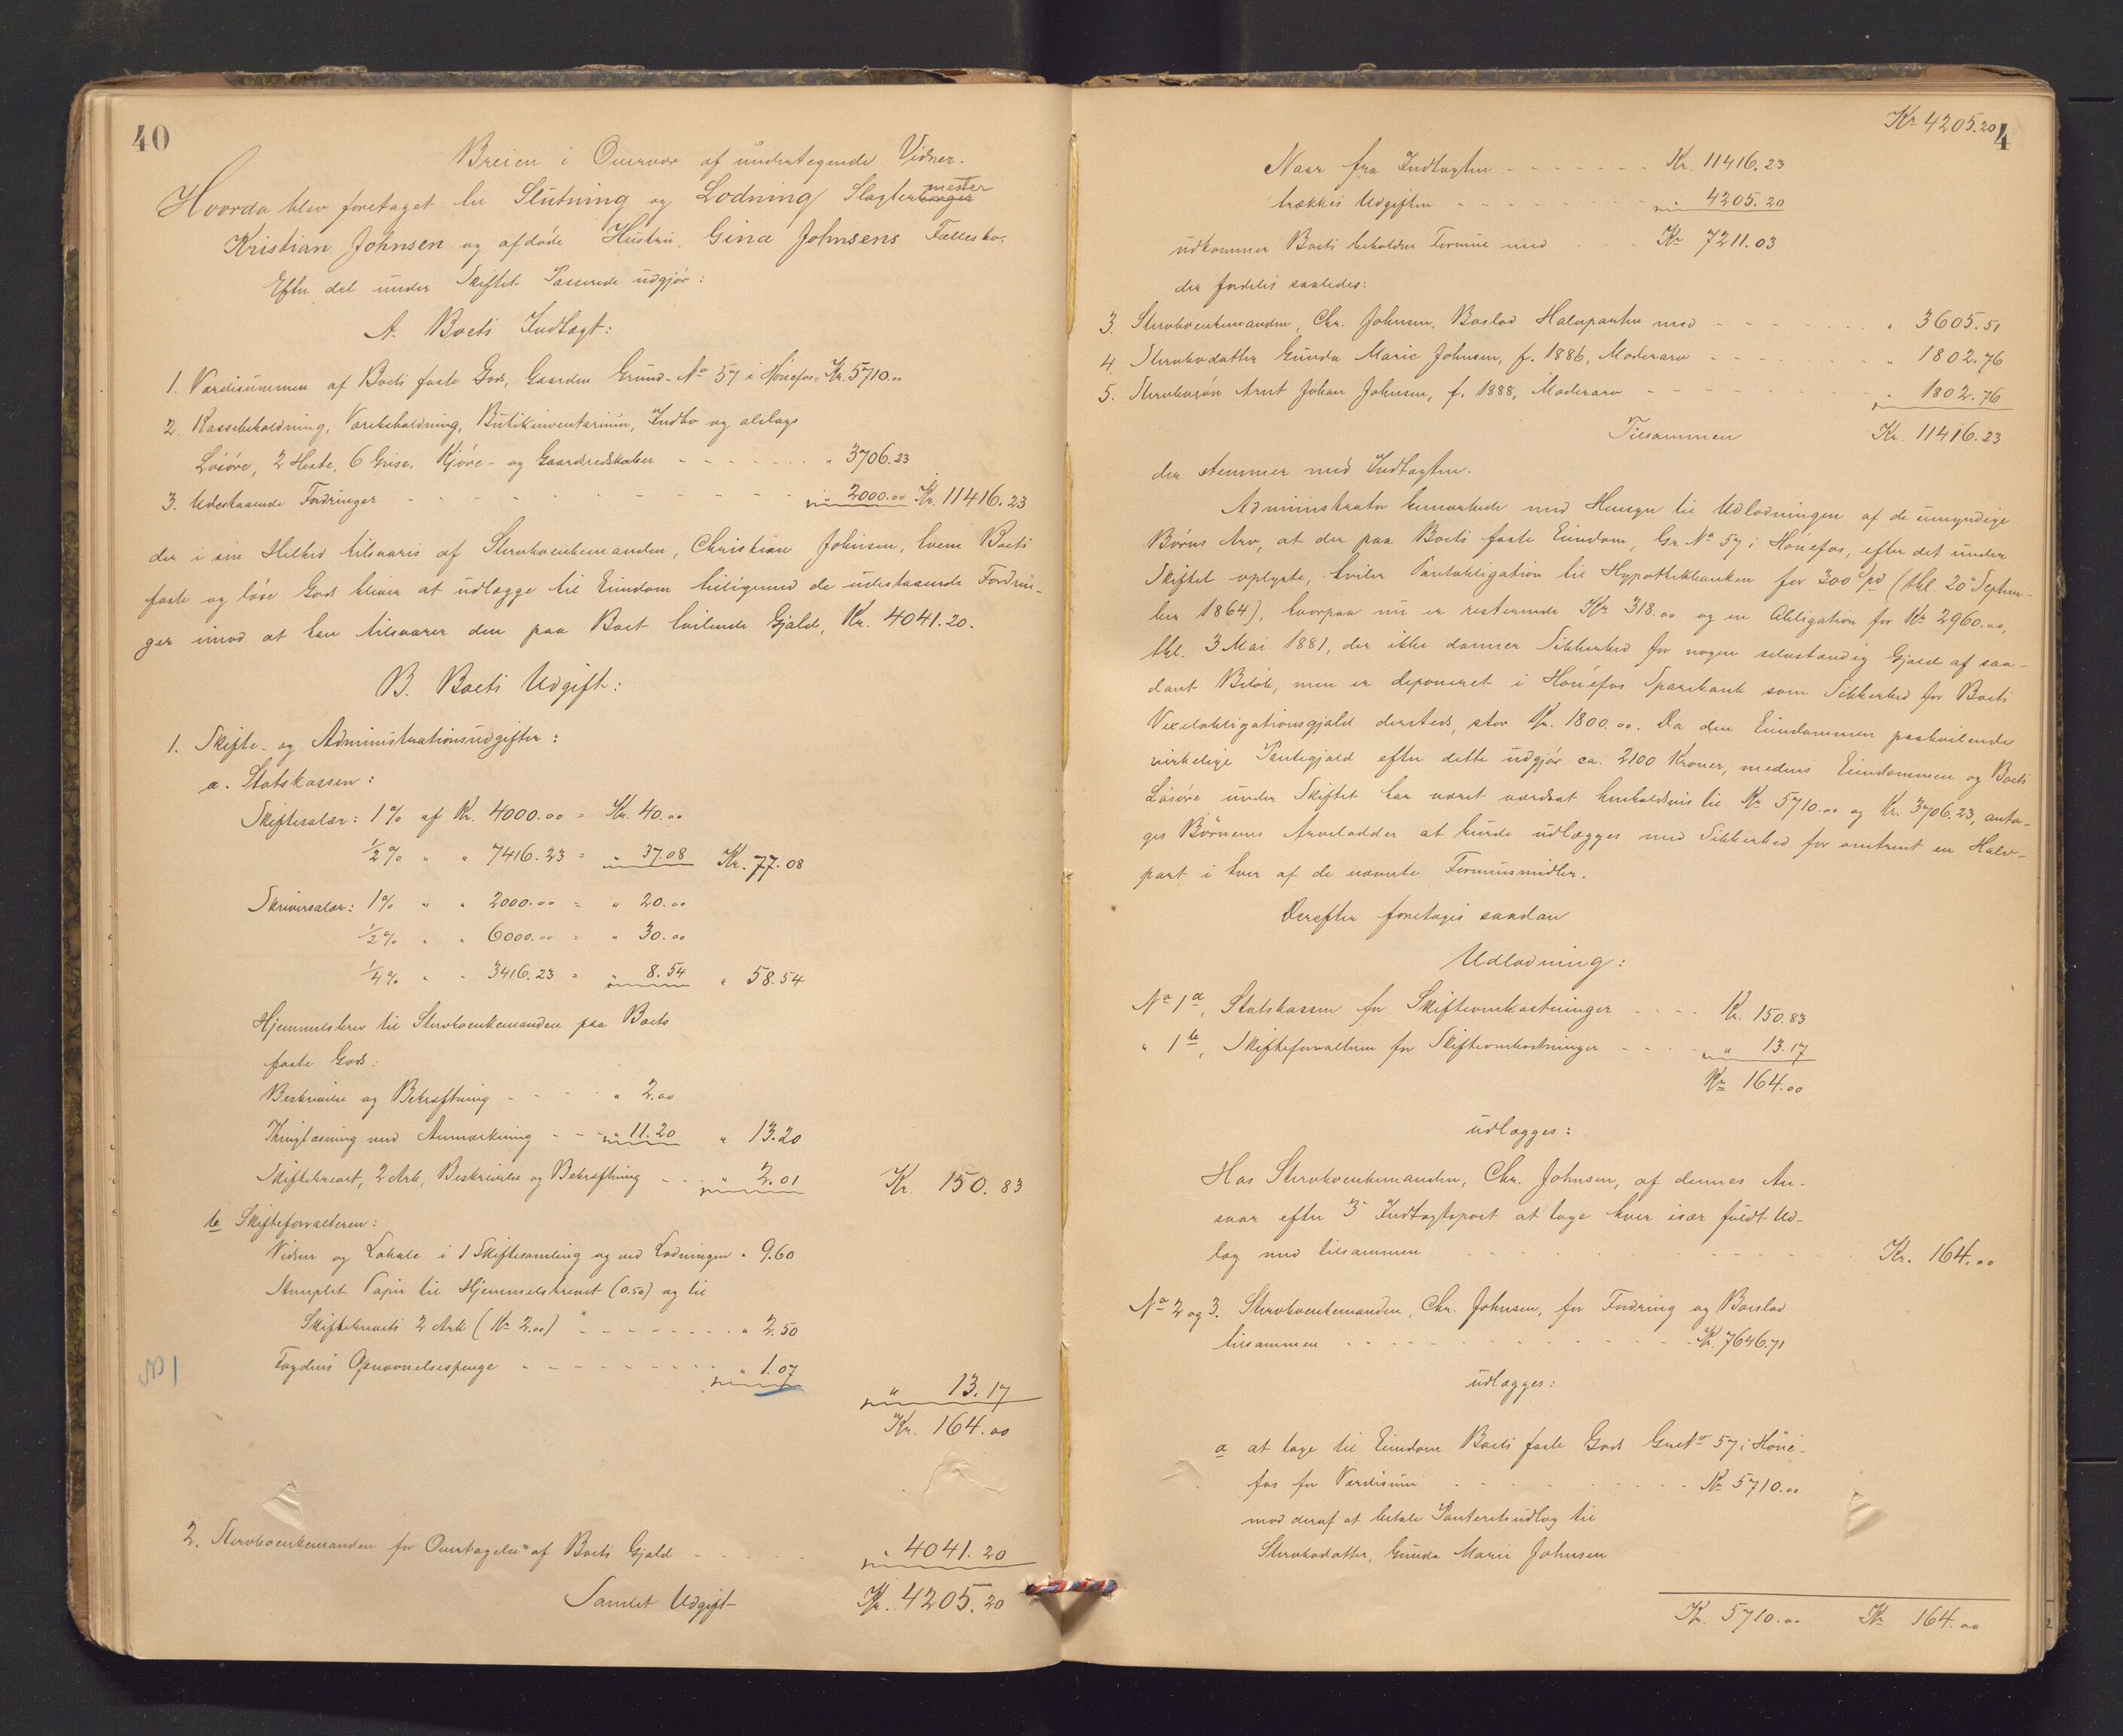 40
Breien i Overvær af undertegnede Vidner.
Hvorda blev foretaget til Slutning og Lodning Slagtermester
Kristian Johnsen og afdøde Hustru, Gina Johnsens Fællesbo.
Efter det under Skiftet Passerede udgjør:
A. Boets Indtægt:
1. Værdisummen af Boets faste Gods, Gaarden Grund-No 57 i Hönefos= Kr. 5710.00
2. Kassebeholdning, Varebeholdning, Butikinventarium, Indbo og alslags
Løsöre, 2 Heste, 6 Grise, Kjöre- og Gaardsredskaber - - - - - " 3706.23
3. Udestaaende Fordringer - - - - - - - - " 2000.00 Kr. 11416.23
der i sin Helhed tilsvares af Stervboenkemanden, Christian Johnsen, hvem Boets
faste og löse Gods bliver at udlægge til Eiendom tilligemed de udestaaende Fordrin-
ger imod at han tilsvarer den paa Boet hvilende Gjæld, Kr. 4041.20.
B. Boets Udgift:
1. Skifte- og Administrationsudgifter:
a. Statskassen:
Skiftesalær: 1 % af Kr. 4000.00 = Kr. 40.00
1/2 % " " 7416.23 = " 37.08 Kr. 77.08
Skriversalær: 1 % " " 2000.00 = " 20.00
1/2 % " " 6000.00 = " 30.00
1/4 % " " 3416.23 = " 8.54 " 58.54
Hjemmelsbrev til Stervboenkemanden paa Boets
faste Gods:
Beskrivelse og Bekræftning - - - - " 2.00
Thinglæsning med Anmærkning - - " 11.20 " 13.20
Skiftebrevet, 2 Ark, Beskrivelse og Bekræftning - - " 2.01 Kr. 150.83
b Skifteforvalteren:
Vidner og Lokale i 1 Skiftesamling og ved Lodningen " 9.60
Stemplet Papir til Hjemmelsbrevet (0.50) og til
Skiftebrevets 2 Ark (Kr 2.00) - - - - - - - - " 2.50
Fogdens Opnævnelsespenge - - - - - - - - " 1.07
" 13.17
Kr. 164.00
2. Stervboenkemanden for Overtagelse af Boets Gjæld - - - - " 4041.20
Samlet Udgift Kr. 4205.20
Kr 4205.20
4
Naar fra Indtægten - - - - - - - Kr. 11416.23
trækkes Udgiften - - - - - - - - " 4205.20
udkommer Boets beholdne Formue med - - - Kr 7211.03
der fordeles saaledes:
3. Stervboenkemanden, Chr. Johnsen, Boslod Halvparten med - - - - - " 3605.51
4. Stervbodatter Gunda Marie Johnsen, f. 1886, Moderarv - - - - - " 1802.76
5. Stervbosön Arnt Johan Johnsen, f. 1888, Moderarv - - - - - " 1802.76
Tilsammen Kr. 11416.23
der stemmer med Indtægten.
Administrator bemærkede med Hensyn til Udlodningen af de umyndige
Börns Arv, at der paa Boets faste Eiendom, Gr No 57 i Hönefos, efter det under
Skiftet oplyste, hviler Pantobligation til Hypothekbanken for 300 Spd (thl. 20 Septem-
ber 1864), hvorpaa nu er resterende Kr 318.00 og en Obligation for Kr 2960.00,
thl. 3 Mai 1881, der ikke danner Sikkerhed for nogen selvstændig Gjæld af saa-
dant Belöb, men er deponeret i Hönefos Sparebank som Sikkerhed for Boets
Vexelobligationsgjæld dersteds, stor Kr. 1800.00. Da den Eiendommen paahvilende
virkelige Pantegjæld efter dette udgjör ca. 2100 Kroner, medens Eiendommen og Boets
Løsöre under Skiftet har været værdsat henholdsvis til Kr 5710.00 og Kr. 3706.23, anta-
ges Börnenes Arvelodder at burde udlægges med Sikkerhed for omtrent en Halv-
part i hver af de nævnte Formuesmidler.
Derefter foretages saadan
Udlodning:
No 1 a, Statskassen for Skifteomkostninger - - - - Kr. 150.83
" 1 b, Skifteforvalteren for Skifteomkostninger - - - - " 13.17
Kr 164.00
udlægges:
Hos Stervboenkemanden, Chr. Johnsen, af dennes An-
svar efter 3 Indtægtspost at tage hver især fuldt Ud-
læg med tilsammen - - - - - - - - Kr. 164.00
No 2 og 3. Stervboenkemanden, Chr. Johnsen, for Fordring og Boeslod
tilsammen - - - - - - - - Kr. 7646.71
udlægges:
a at tage til Eiendom Boets faste Gods Gr No 57 i Höne-
fos for Værdisum - - - - - - - Kr 5710.00
mod deraf at betale Panteretsudlæg til
Stervbodatter, Gunda Marie Johnsen
Kr. 5710.00 Kr 164.00